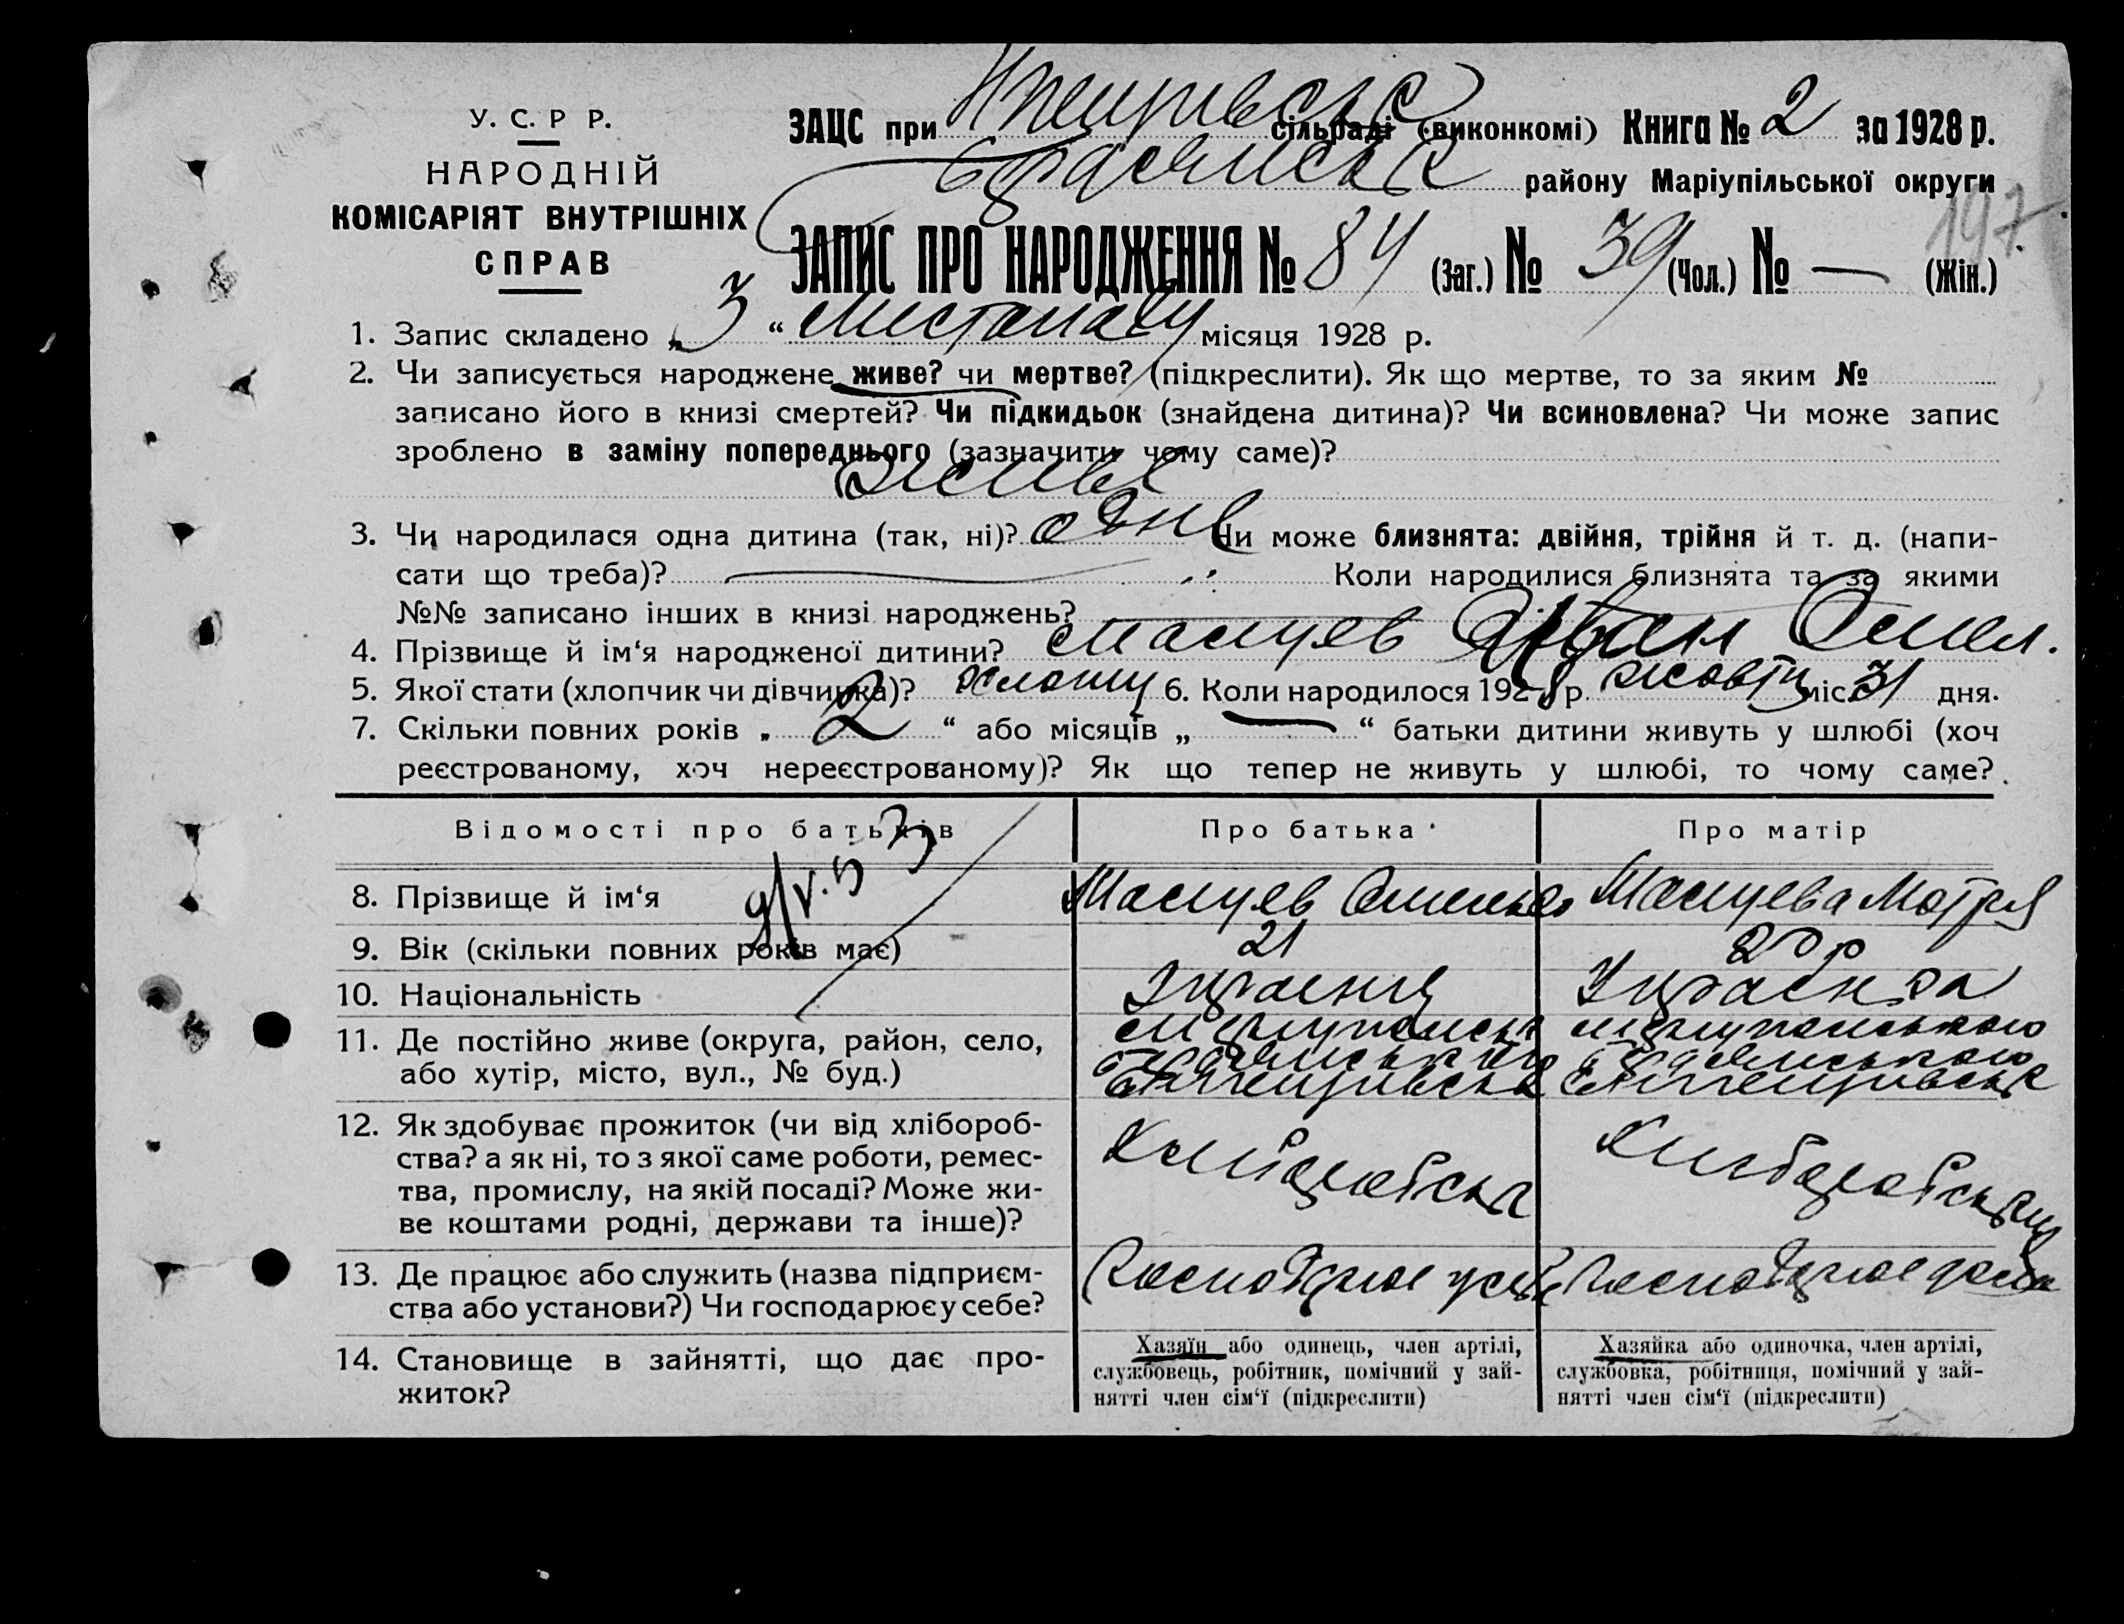 У. С. Р Р.
НАРОДНІЙ
КОМІСАРІЯТ ВНУТРІШНІХ
СПРАВ
ЗАЦС при сільраді (виконкомі) Книга № 2 за 1928 р.
району Маріупільської округи
197
ЗАПИС ПРО НАРОДЖЕННЯ № 84 (Заг.) № 39 (Чол.) № — (Жін.)
1. Запис складено „ 3 “ листопаду місяця 1928 р.
2. Чи записується народжене живе? чи мертве? (підкреслити). Як що мертве, то за яким №
записано його в книзі смертей? Чи підкидьок (знайдена дитина)? Чи всиновлена? Чи може запис
зроблено в заміну попереднього (зазначити чому саме)?
живе
3. Чи народилася одна дитина (так, ні)? одне Чи може близнята: двійня, трійня й т. д. (напи-
сати що треба)? Коли народилися близнята та за якими
№№ записано інших в книзі народжень?
4. Прізвище й ім‘я народженої дитини? Іван Омел.
5. Якої стати (хлопчик чи дівчинка)? 6. Коли народилося 1928 р. жовтн міс. 31 дня.
7. Скільки повних років „ 2 “ або місяців „ — “ батьки дитини живуть у шлюбі (хоч
реєстрованому, хоч нереєстрованому)? Як що тепер не живуть у шлюбі, то чому саме?
Відомості про батьків Про батька Про матір
8. Прізвище й ім‘я Мотря
9. Вік (скільки повних років має) 21 20 р
10. Національність Українец Українка
11. Де постійно живе (округа, район, село,
або хутір, місто, вул., № буд.)
12. Як здобуває прожиток (чи від хлібороб-
ства? а як ні, то з якої саме роботи, ремес-
тва, промислу, на якій посаді? Може жи-
ве коштами родні, держави та інше)?
13. Де працює або служить (назва підприєм-
ства або установи?) Чи господарює у себе?
14. Становище в зайнятті, що дає про-
житок?
Хазяїн або одинець, член артілі,
службовець, робітник, помічний у зай-
нятті член сім‘ї (підкреслити)
Хазяйка або одиночка, член артілі,
службовка, робітниця, помічний у зай-
нятті член сім‘ї (підкреслити)